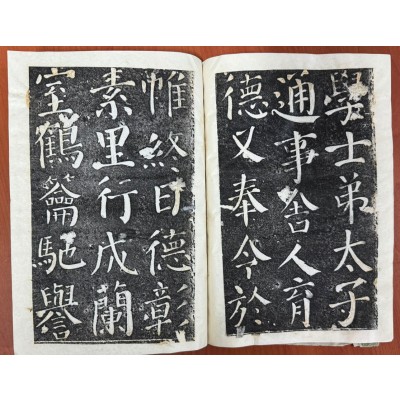 學士弟太子
通事舍人育
德又奉令於
帷終日德彰
素里行成蘭
室鶴籥馳譽